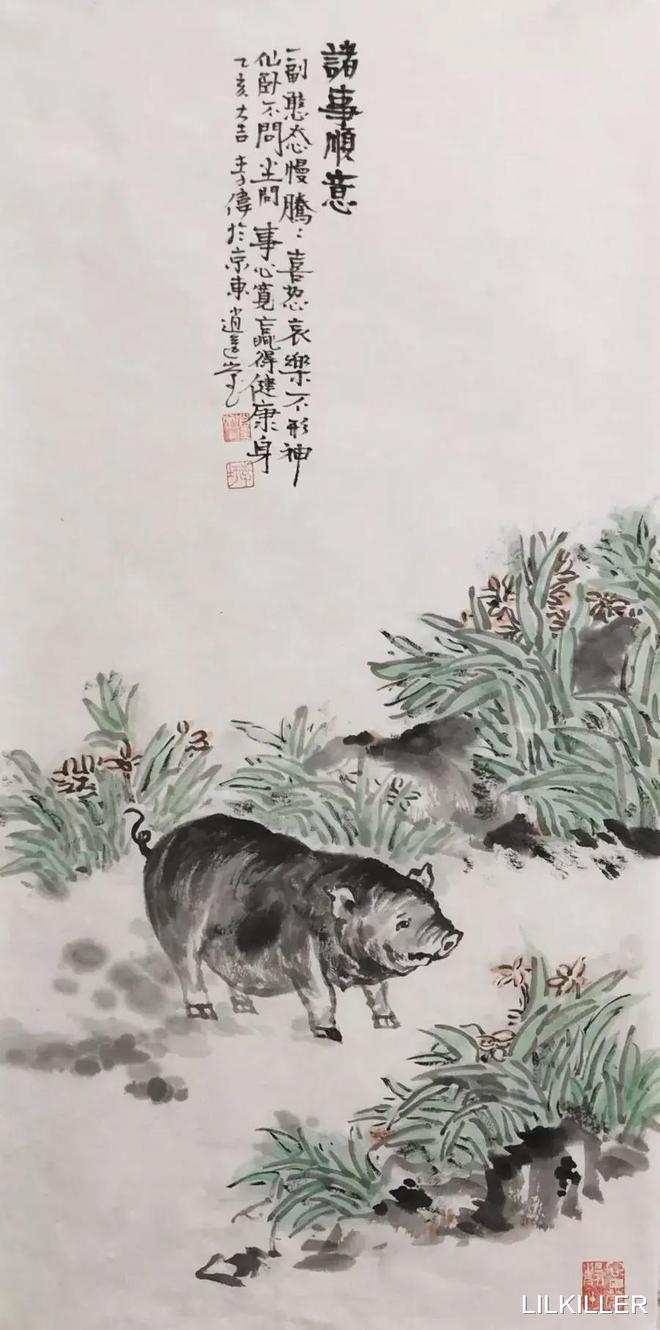 諸事順意
一副憨态慢騰〻喜怒哀樂不形神
仙卧不問坐問事心寬贏得健康身
乙亥大吉李偉於京東逍遥堂
LILKILLER